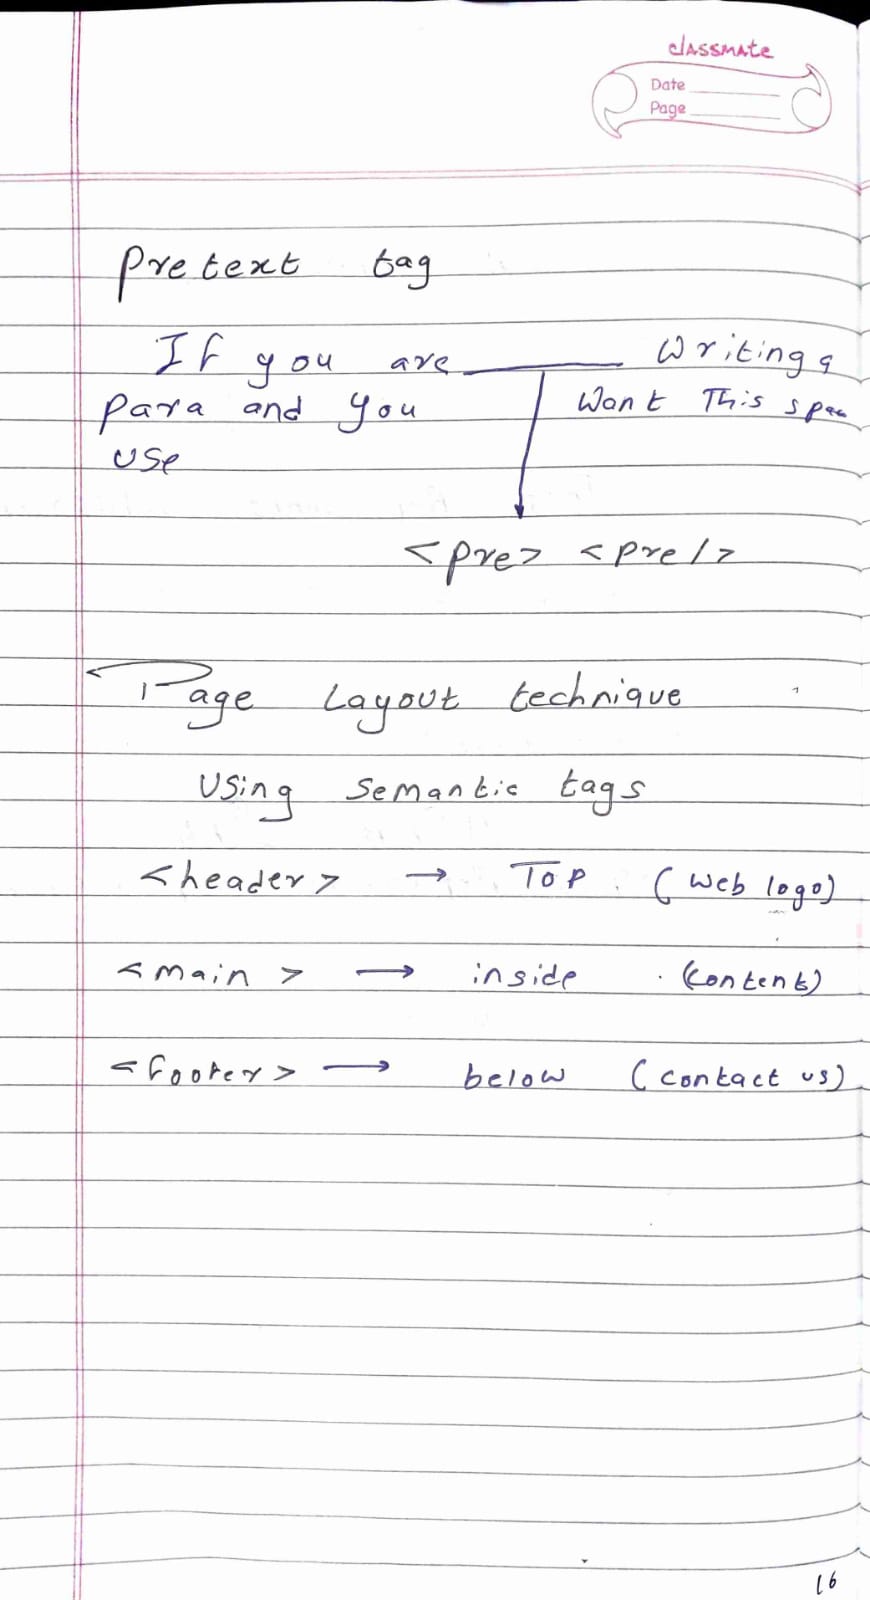 classmate
Date
Page
Pretext tag
If you are writing a
para and you want this space
use
<pre> <pre/>
Page Layout technique
Using Semantic tags
<header> → TOP (web logo)
<main> → inside (content)
<footer> → below (contact us)
16